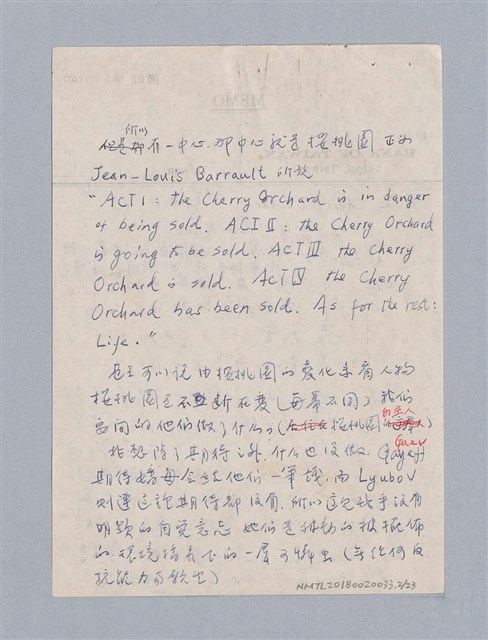 MEMO
所以
有一中心,那中心就是櫻桃園 正如
Jean-Louis Barrault 所說
"ACT I: the Cherry Orchard is in danger
of being sold. ACT II: the Cherry Orchard
is going to be sold. ACT III the Cherry
Orchard is sold. ACT IV the Cherry
Orchard has been sold. As for the rest:
Life."
甚至可以說由櫻桃園的變化來看人物
櫻桃園是不斷在變(每幕不同)我們
要問的他們做了什么?(櫻桃園的主人)
除了期待之外,什么也沒做. Gayeff Gaev
期待 母會給他們一筆錢,而 Lyubov
則連這 期待都沒有.所以這 沒有
明顯的自覺意志 她們是被動的被擺佈
的.環境 下的 犧牲(無任何反
抗能力的 )
NMTL20180020033,2/23